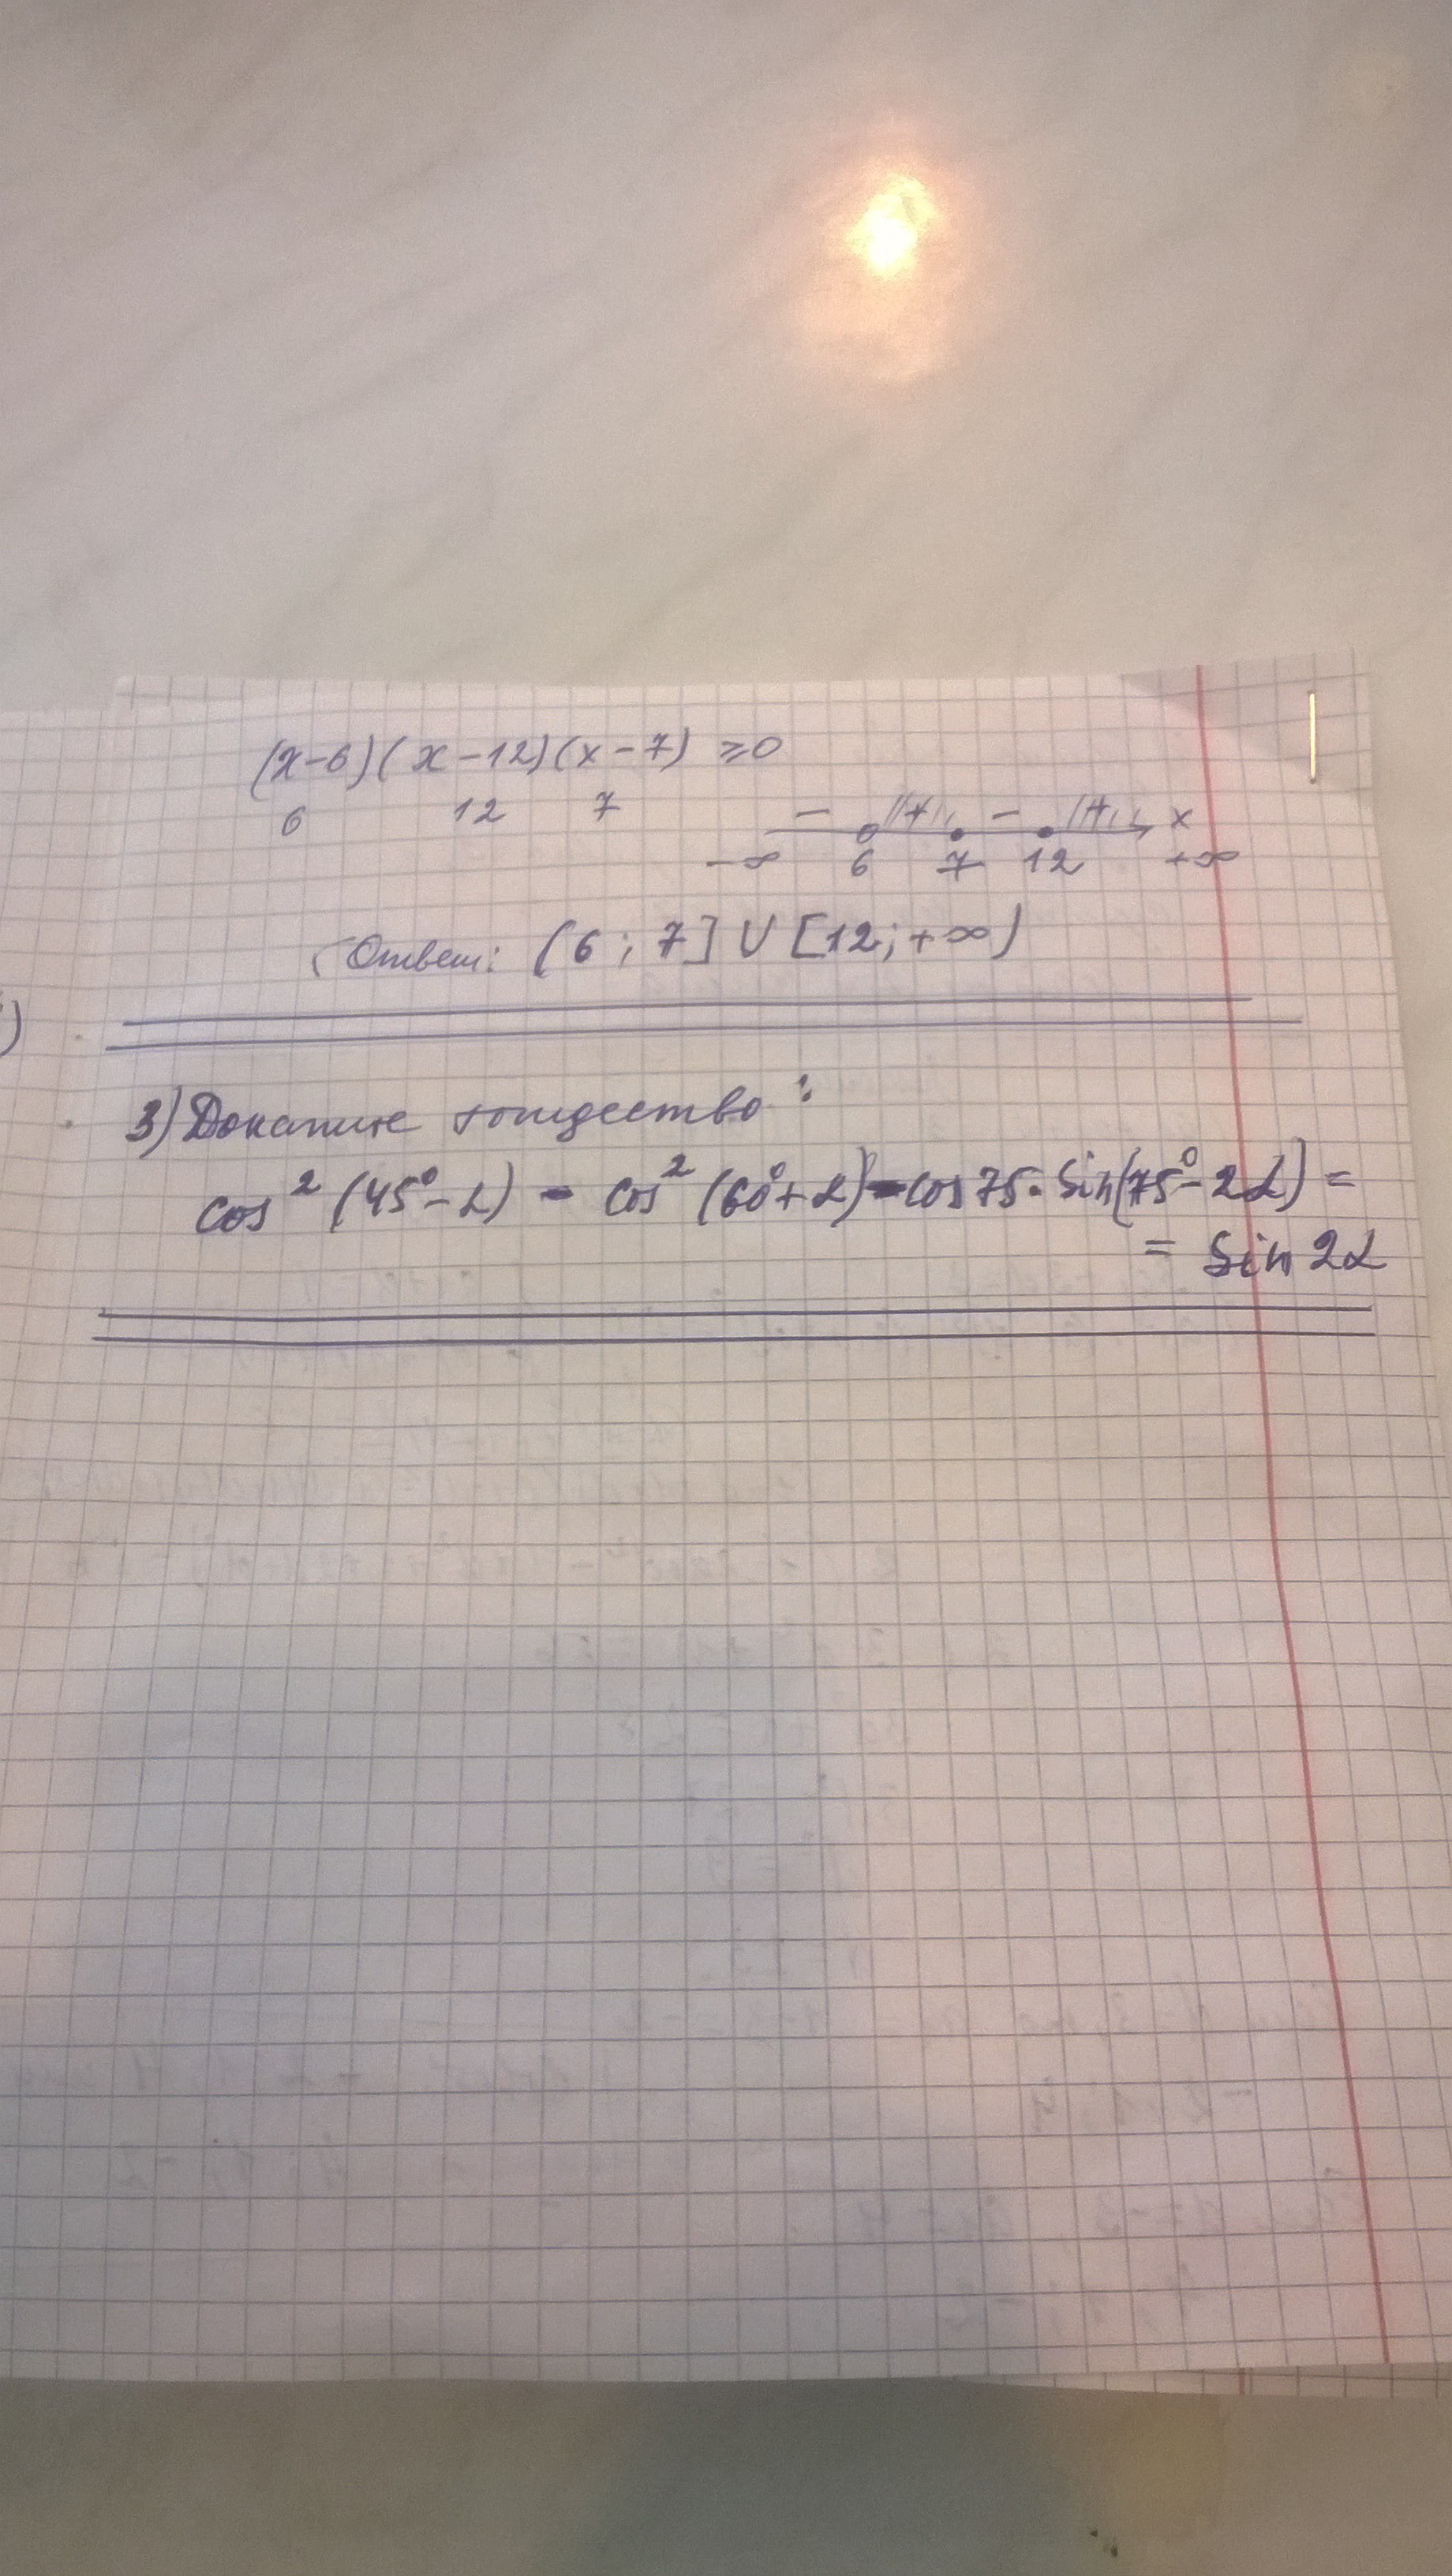 (x-6)(x-12)(x-7) ≥0
6 12 7
- + - + x
-∞ 6 7 12 +∞
Ответ: (6; 7] U [12; +∞)
3) Докажите тождество:
cos² (45°-α) - cos² (60°+α) - cos 75 · Sin(75°-2α) =
= Sin 2α